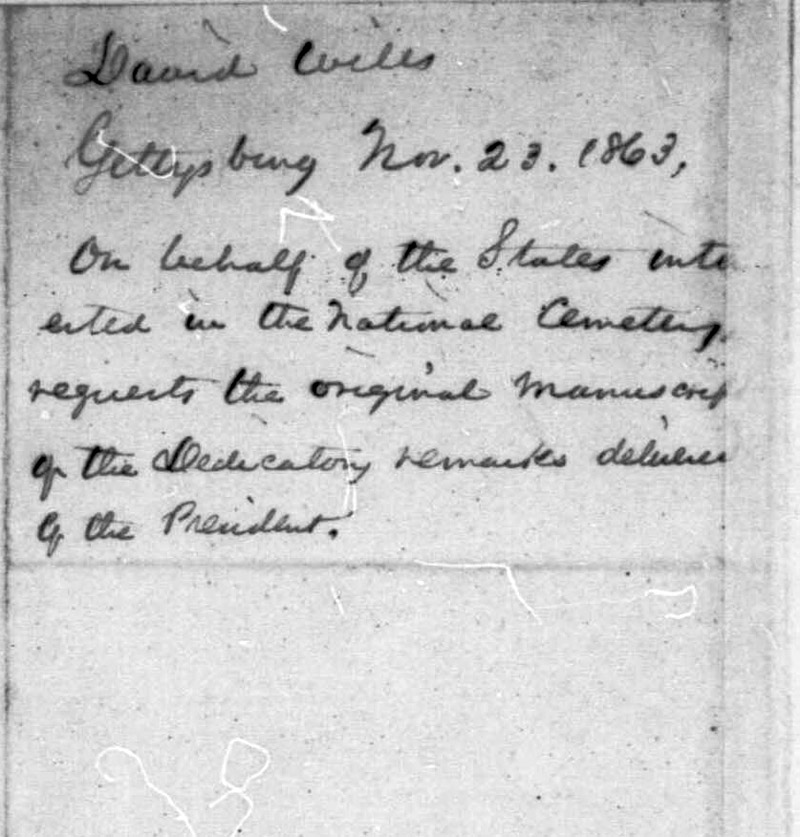 David Wills
Gettysburg Nov. 23. 1863,
On behalf of the States inte
ested in the National Cemetery
requests the original manuscrip
of the Dedicatory remarks delivere
by the President.